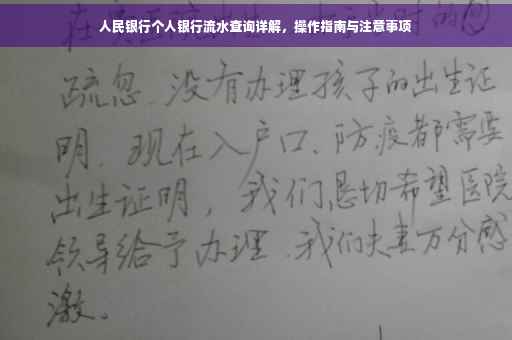 人民银行个人银行流水查询详解，操作指南与注意事项
疏忽.没有办理孩子的出生证
明.现在入户口、防疫都需要
出生证明，我们恳切希望医院
领导给予办理.我们夫妻万分感
激。